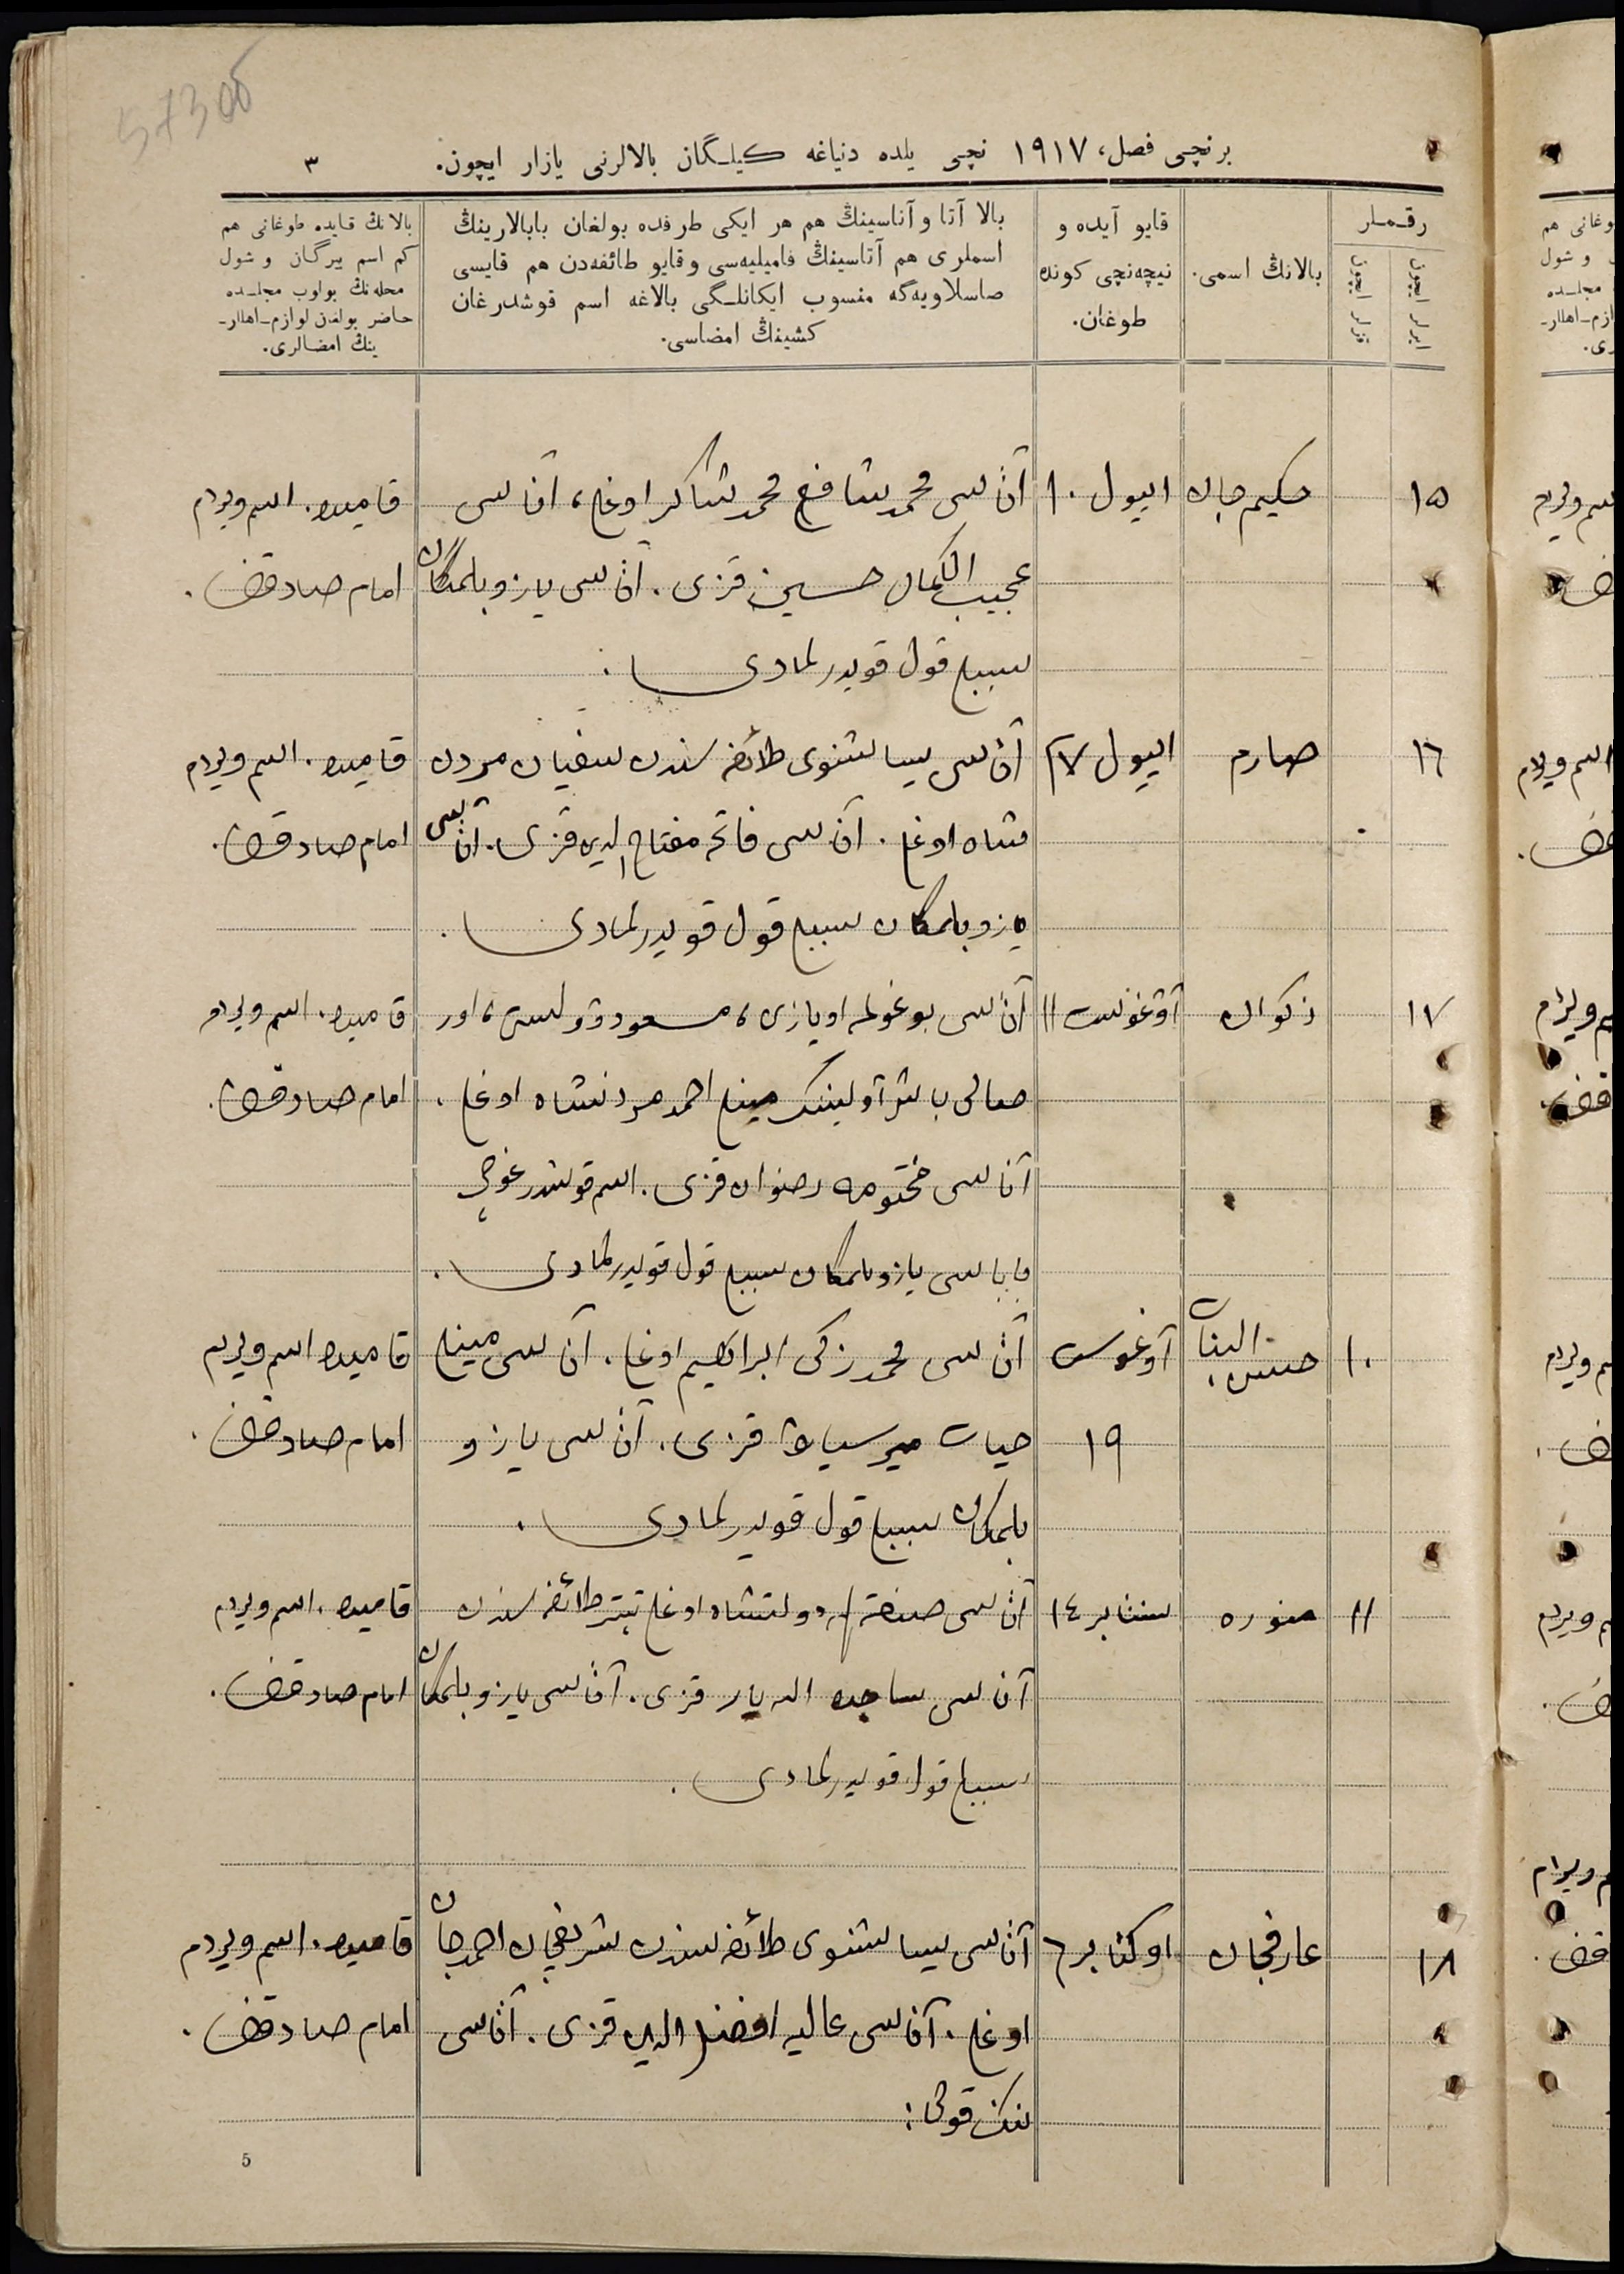 573 об
برنچی فصل، ١٩١٧ نچی يلده دنياغه كيلـگان بالالرنی يازار ايچون.
٣
رقـمـلر
ايرلر ايچون
قزلر ايچون
بالانڭ اسمی.
قايو آيده و
نيچه‌نچی كونده
طوغان.
بالا آتا و آناسينڭ هم هر ايكی طرفده بولغان بابالارينڭ
اسملری هم آتاسينڭ فاميليه‌سی و قايو طائفه‌دن هم قايسی
صاسلاويه‌گه منسوب ايكانلـگی بالاغه اسم قوشدرغان
كشينڭ امضاسی.
بالانڭ قايده طوغانی هم
كم اسم بيرگان و شول
محله‌نڭ بولوب مجلـده
حاضر بولغان لوازم-اهللر-
ينڭ امضالری.
١٥
حكيم جان
اييول ١٠
آتاسی محمد شافع محمد شاكر اوغلی، آناسی
عجيب الكمال حسين قزی. آتاسی يازو بلمگان
سببلی قول قويدرلمادی.
قاميده. اسم ويردم
امام صادقف.
١٦
صارم
اييول ٢٧
آتاسی يساشنوی طائفه سندن سفيان مردن
شاه اوغلی. آناسی فاتحه مفتاح الدين قزی. آتاسی
يازو بلمگان سببلی قول قويدرلمادی.
قاميده. اسم ويردم
امام صادقف.
١٧
ذكوان
آوغوست ١١
آتاسی بوغولمه اويازی، مسعود ولست، اور
صالی باش آولينڭ مينلی احمد مردنشاه اوغلی.
آناسی مختومه رضوان قزی. اسم قوشدرغوچی
باباسی يازو بلمگان سببلی قول قويدرلمادی.
قاميده. اسم ويردم
امام صادقف.
١٠
حسن البنات
آوغوست
١٩
آتاسی محمد زكی ابراهيم اوغلی. آناسی مينلی
حيات مير سياف قزی. آتاسی يازو
بلمگان سببلی قول قويدرلمادی.
قاميده اسم ويردم
امام صادقف.
١١
منوره
سنتابر ١٤
آتاسی صنعة الله دولتشاه اوغلی تبتر طائفه سندن
آناسی ساجده الله يار قزی. آتاسی يازو بلمگان
سببلی قول قويدرلمادی.
قاميده. اسم ويردم
امام صادقف.
١٨
عارفجان
اوكتابر ٦
آتاسی يساشنوی طائفه سندن شريفجان احمدجان
اوغلی. آناسی عاليه افضل الدين قزی. آتاسی
ننڭ قولی:
قاميده. اسم ويردم
امام صادقف.
5